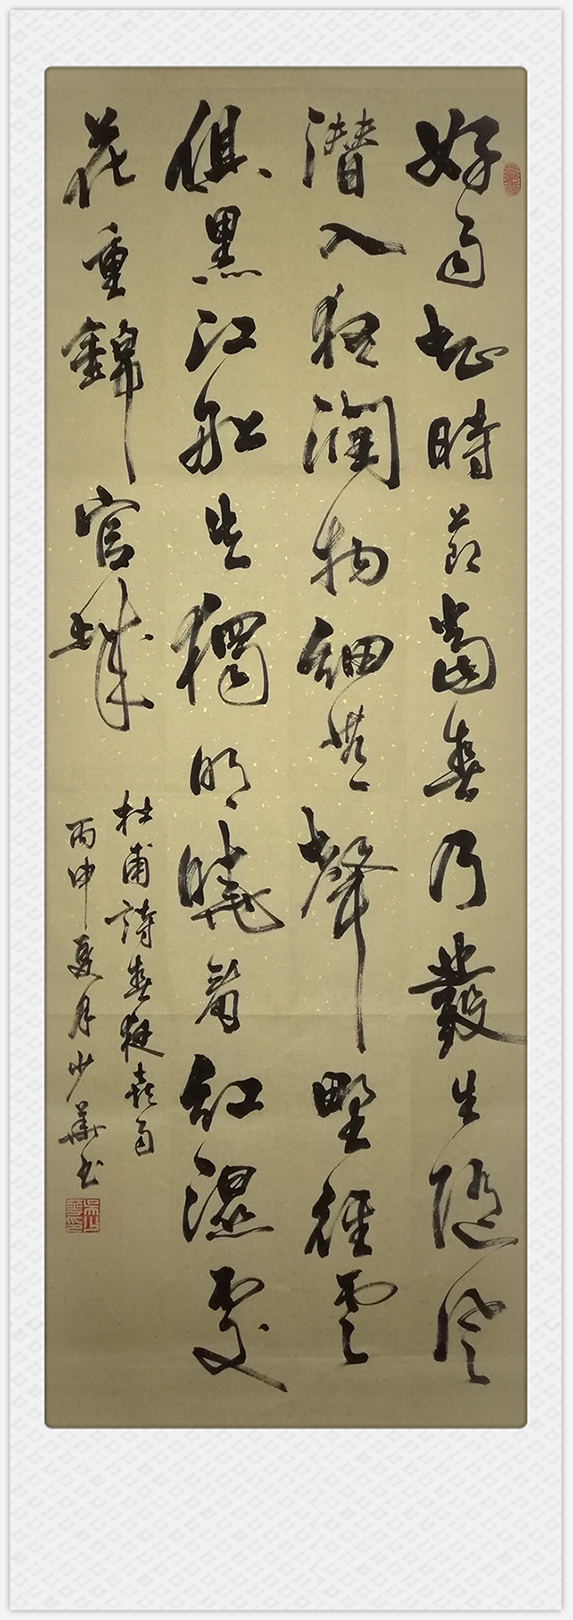 好雨知時節當春乃發生隨風
潛入夜潤物細無聲野徑雲
俱黑江船火獨明曉看紅濕處
花重錦官城
杜甫詩春夜喜雨
丙申夏月少華書